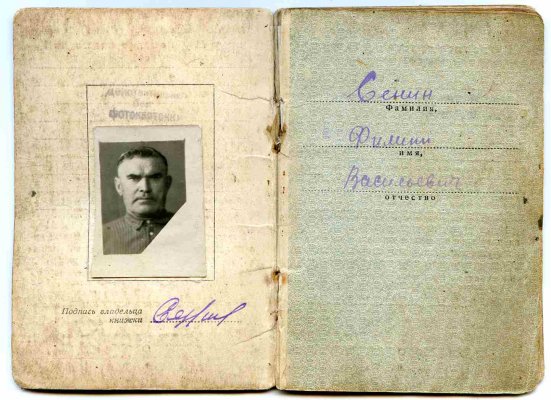 Действительно
без
фотокарточки
Подпись владельца
книжки Сенин
Сенин
Фамилия,
Филипп
имя,
Васильевич
отчество